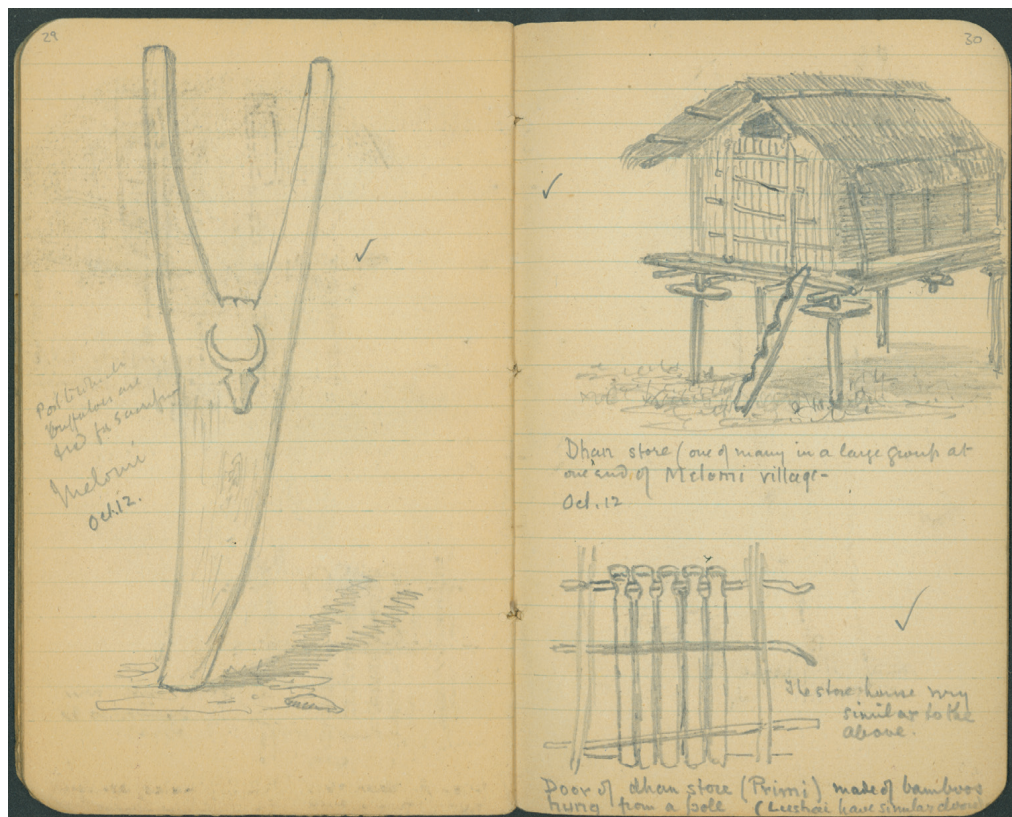 29
Post to which
buffaloes are
tied for sacrifice
Melomi
Oct. 12.
30
Dhan store (one of many in a large group at
one end of Melomi village-
Oct. 12
store house very
similar to the
above.
Door of dhan store (Primi) made of bamboos
hung from a pole (Lushai have similar doors)